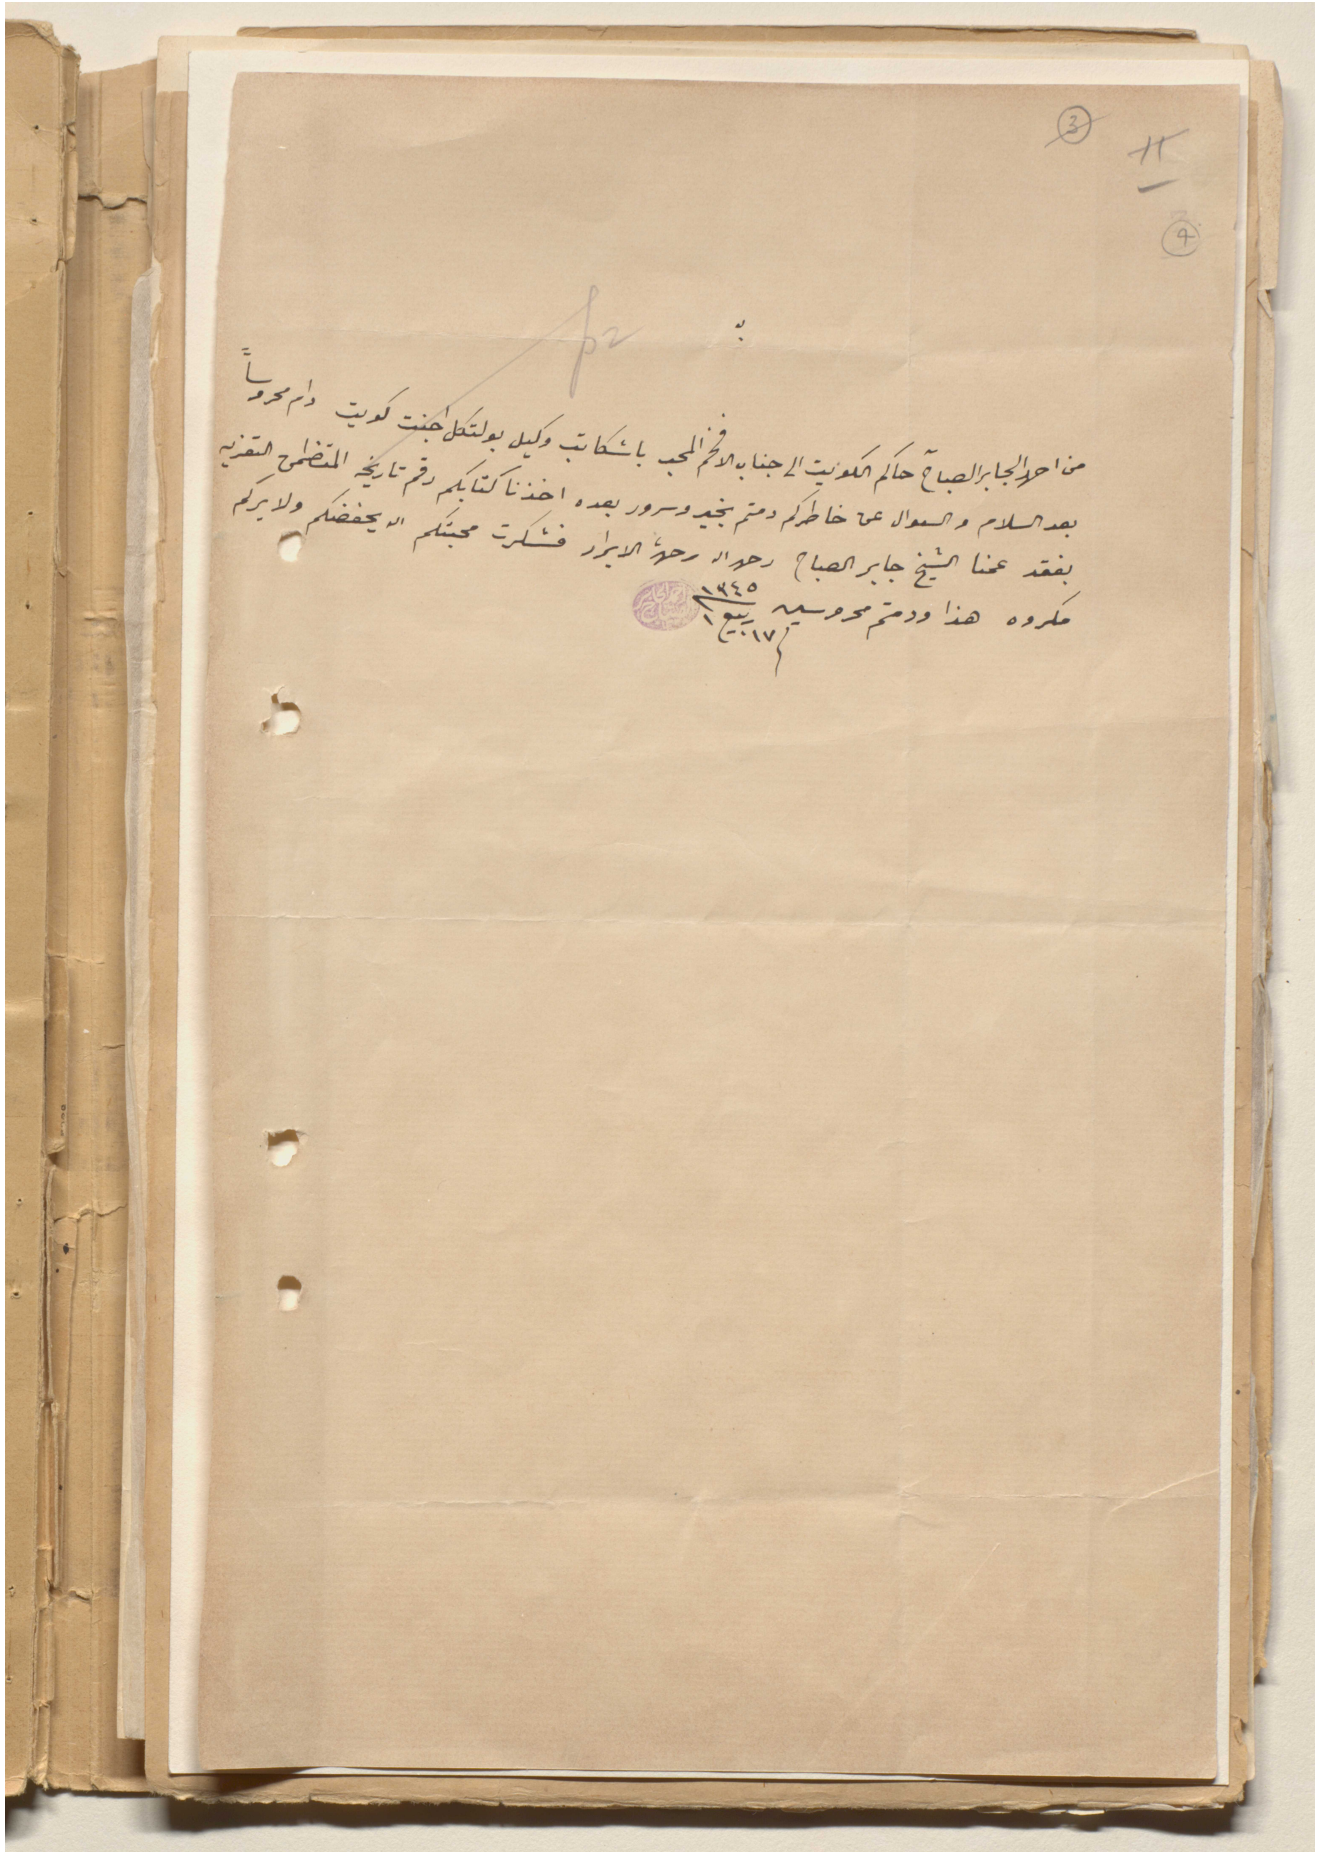 3
11
4
من احمد الجابر الصباح حاكم الكويت الى جناب الافخم المحب باشكاتب وكيل بولتكل اجنت كويت دام محروساً
بعد السلام والسوال عن خاطركم دمتم بخير وسرور بعده اخذنا كتابكم رقم تاريخه المتظمن التعزيه
بفقد عمنا الشيخ جابر الصباح رحمه الله رحمة الابرار فشكرت محبتكم الله يحفضكم ولا يركم
مكروه هذا ودمتم محروسين
١٧ ربيع ١ ١٣٤٥